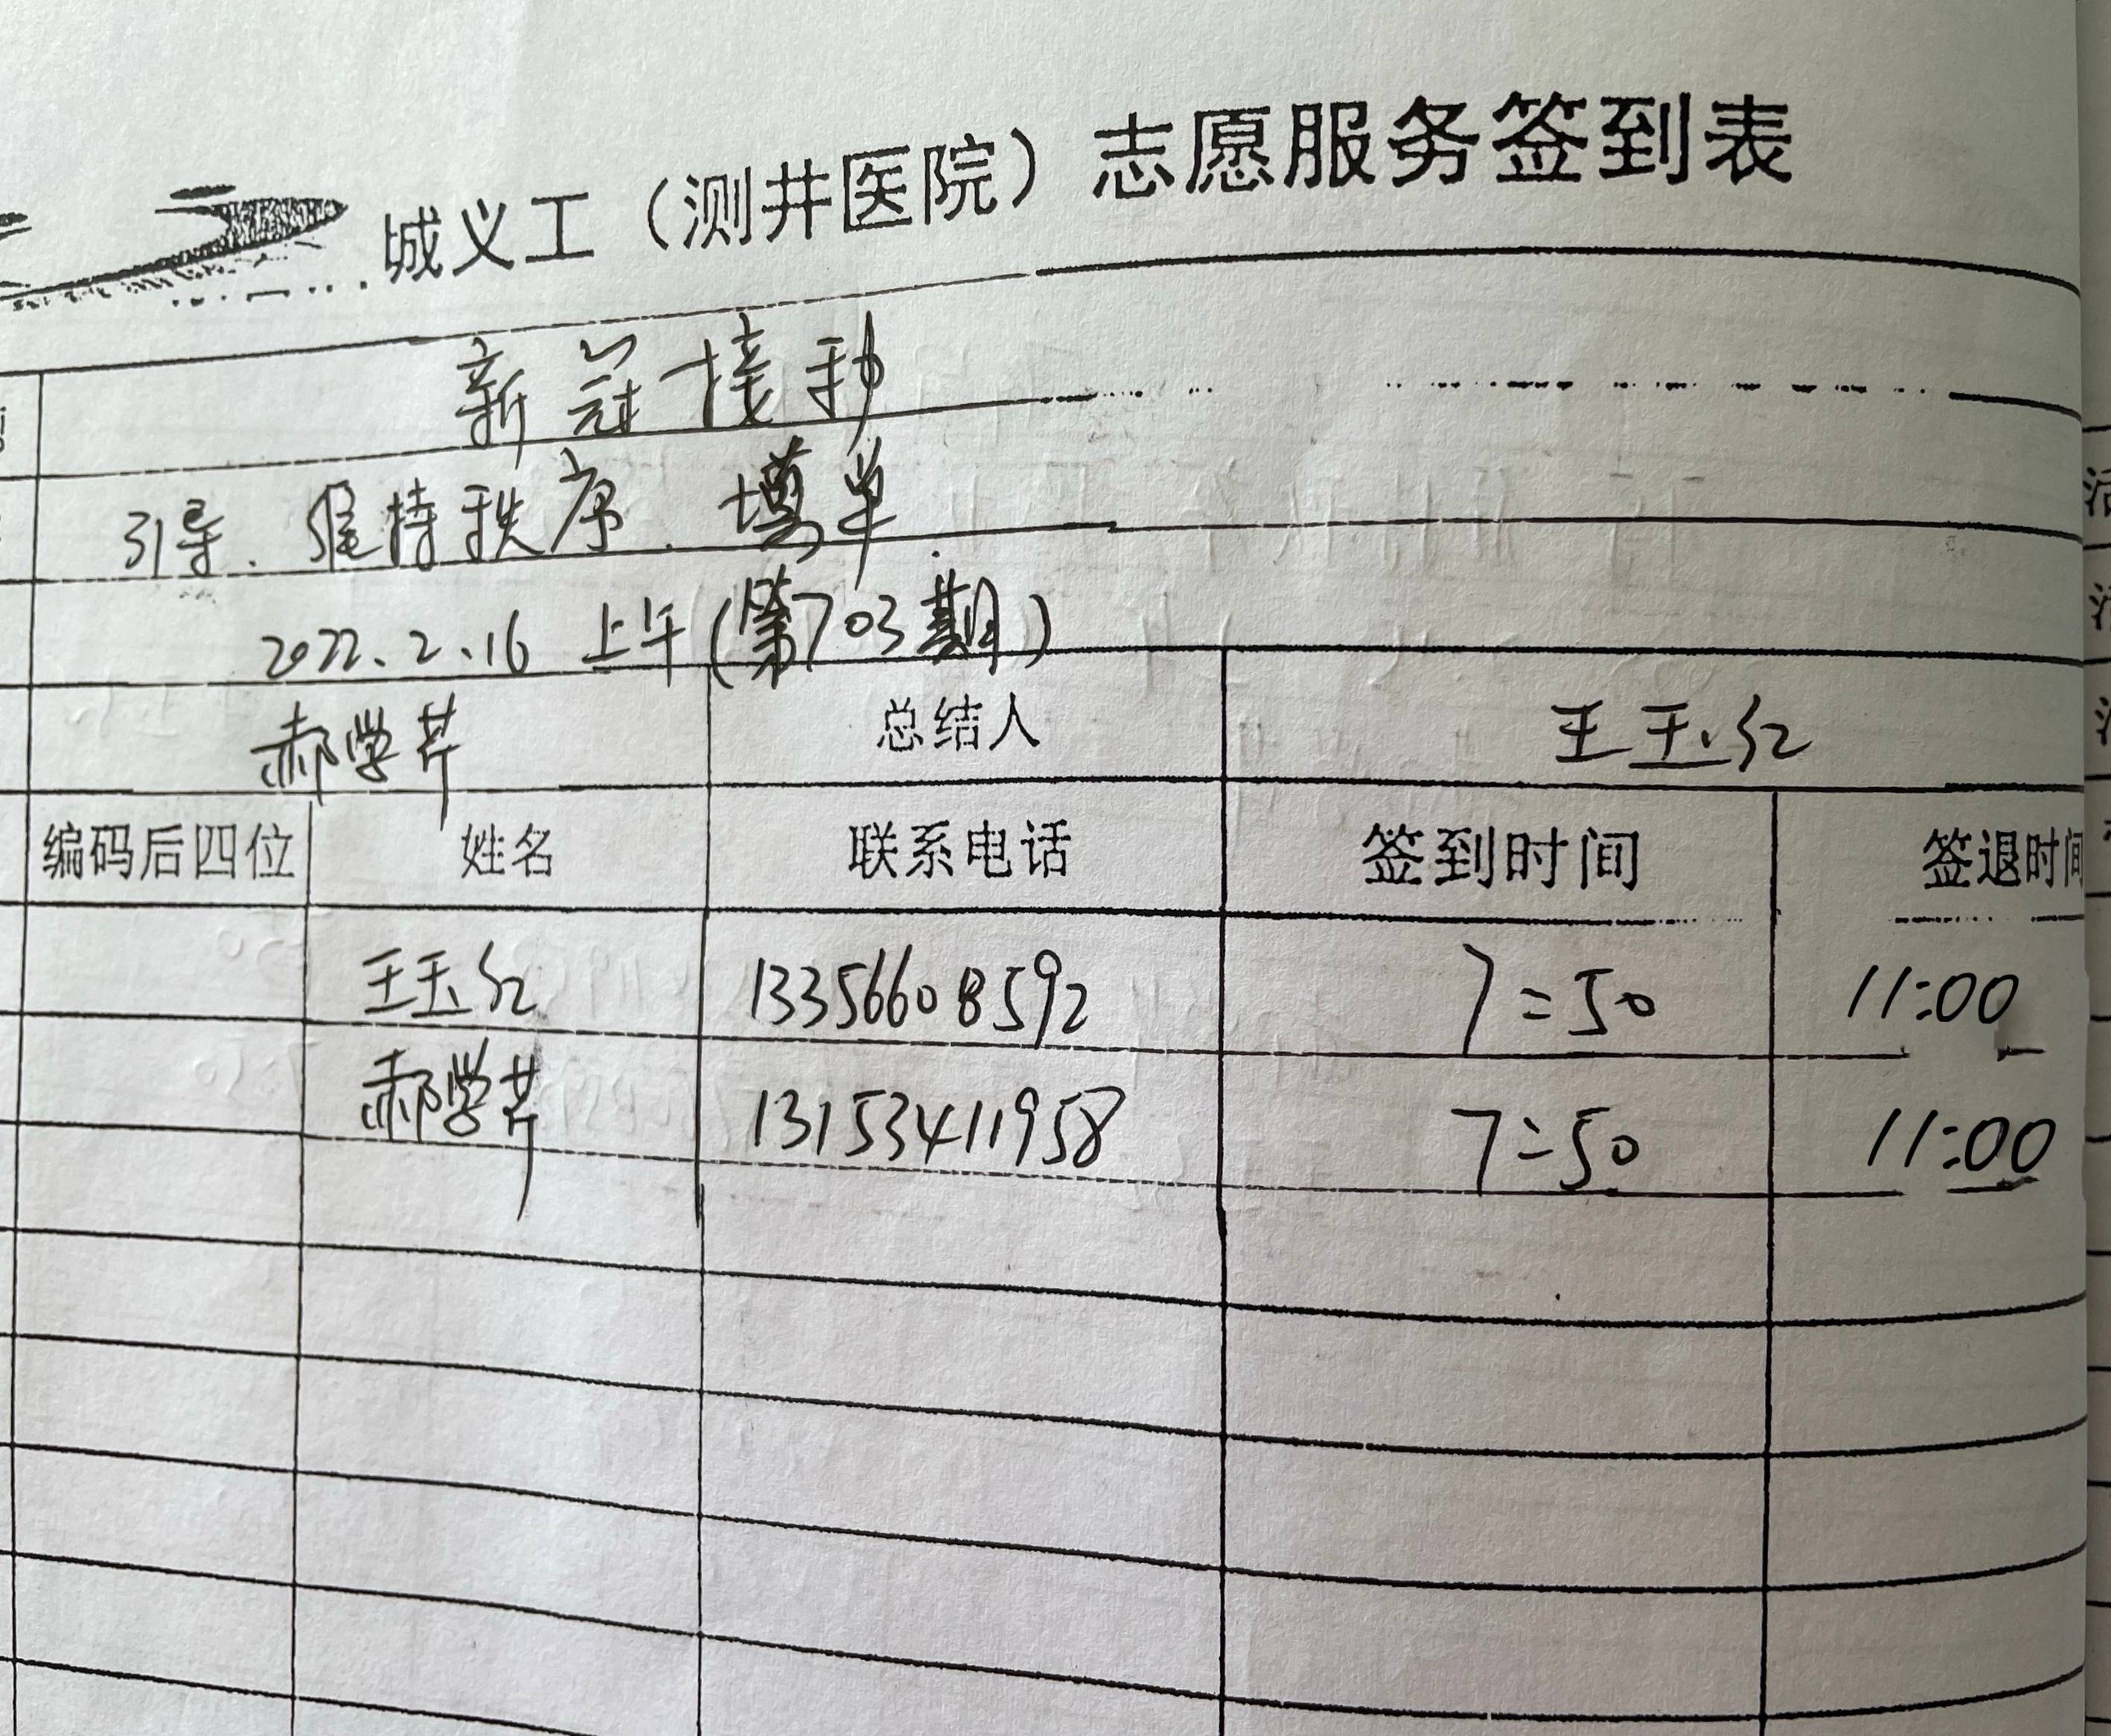 城义工（测井医院）志愿服务签到表
新冠接种
引导、维持秩序、填单
2022.2.16 上午(第703期)
郝学芹 总结人 王玉红
编码后四位 姓名 联系电话 签到时间 签退时间
王玉红 13356608592 7:50 11:00
郝学芹 13153411958 7:50 11:00